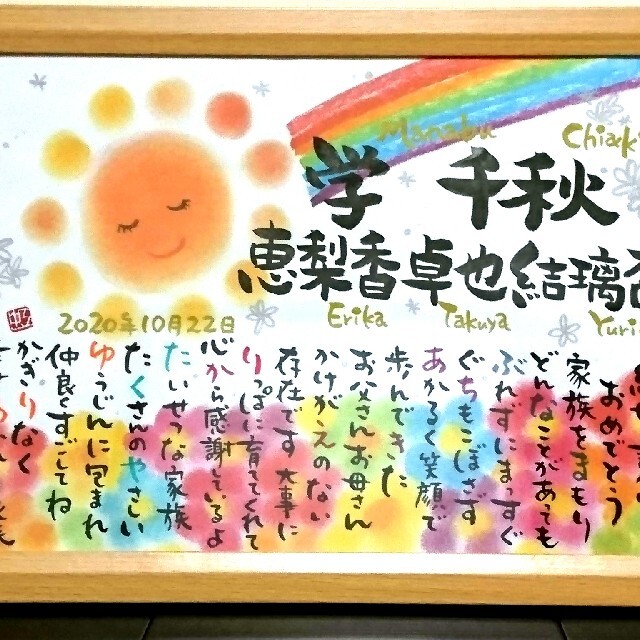 Manabu
学 千秋
恵梨香 卓也 結璃
Erika Takuya
2020年10月22日
おめでとう
家族をまもり
どんなことがあっても
ぶれずにまっすぐ
ぐちもこぼさず
あかるく笑顔で
歩んできた
お父さんお母さん
かけがえのない
存在です 大事に
りっぱに育ててくれて
心から感謝しているよ
たいせつな家族
たくさんのやさしい
ゆうじんに包まれ
仲良くすごしてね
かぎりなく